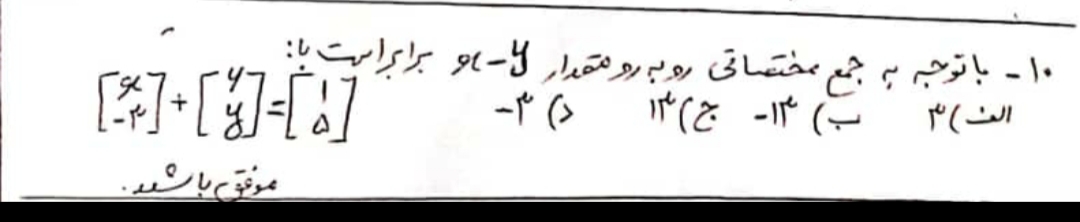 ۱۰- باتوجه به جمع مختصاتی روبه‌رو مقدار x-y برابراست با:
[x -۳] + [۶ y] = [۱ ۵]
الف) ۳ ب) ۱۳- ج) ۱۳ د) ۳-
موفق باشید.